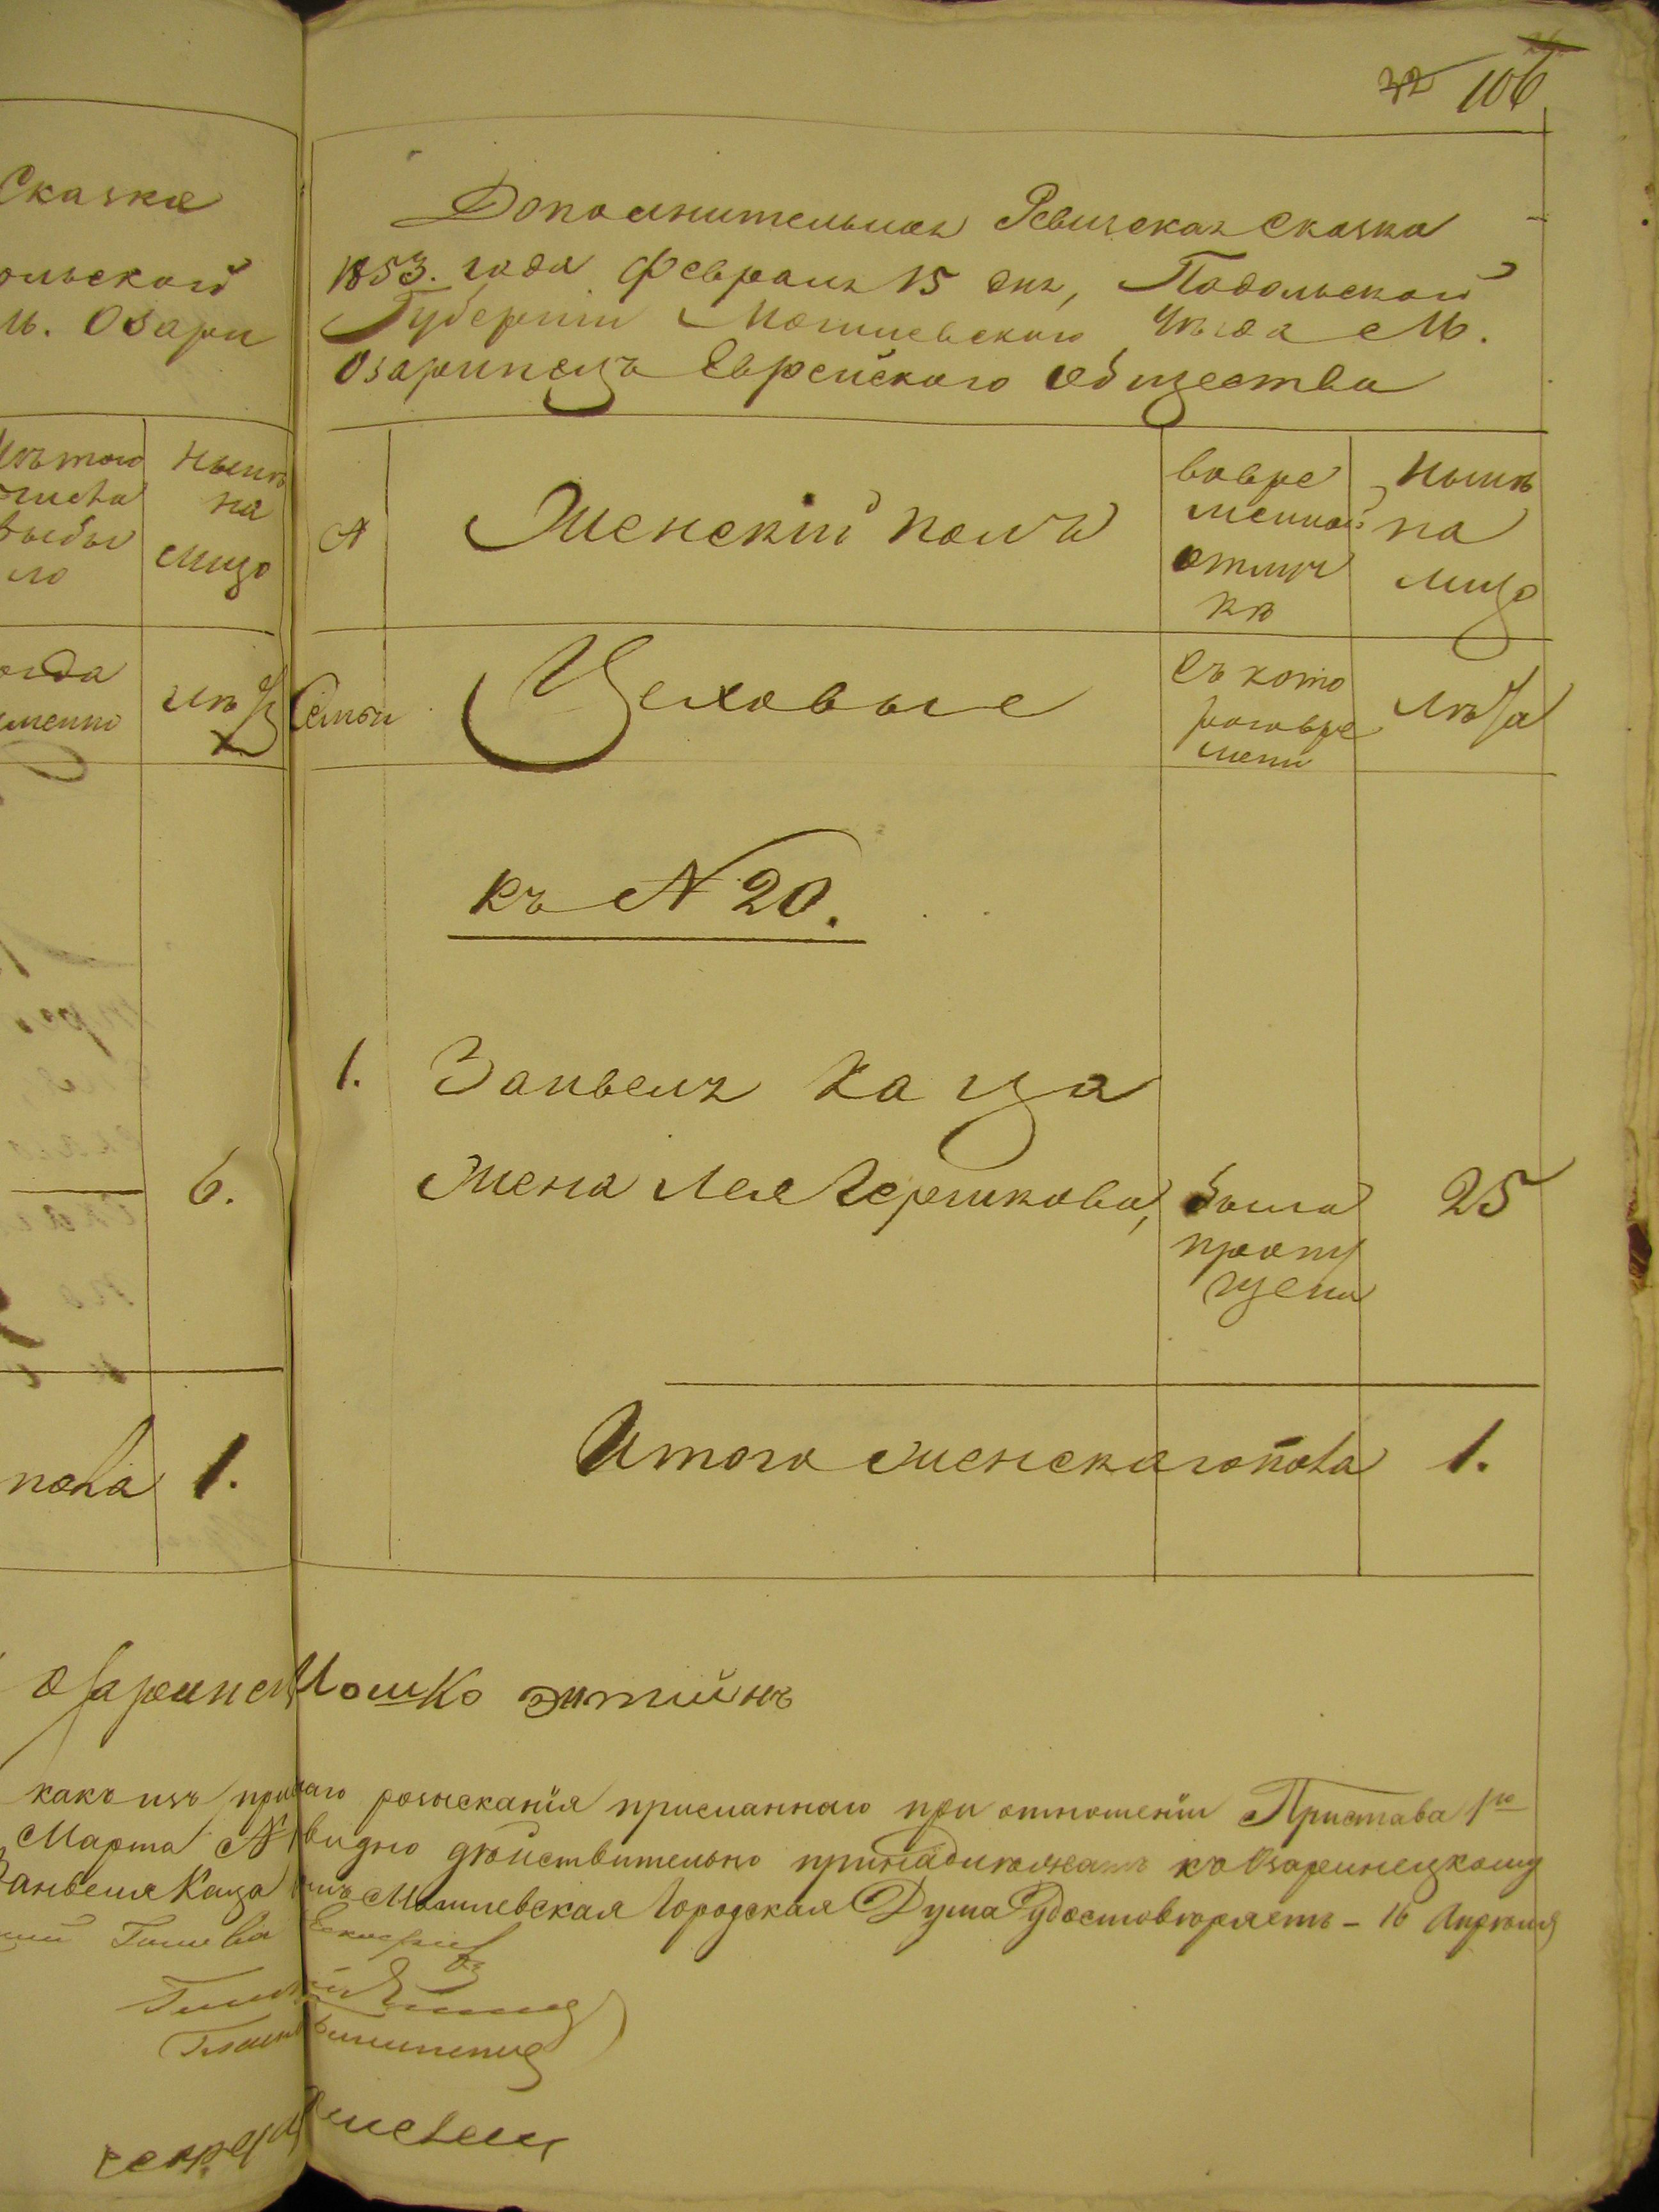 32 106
Сказка
ольскогой
м. Озари
Дополнительная Ревизская Сказка
1853. года Февраля 15 дня, Подольской
Губернии Могилевского Уезда М.
Озаринецъ Еврейского общества
Изъ того
числа
выбы
ло
Нынѣ
на
лицо
№
Женскій полъ
вовре
менной
отлуч
кѣ
Нынѣ
на
лицо
когда
именно
лѣта
Семьи
Цеховые
съ кото
раго вре
мени
Лѣта
къ № 20.
1. Занвеля Каца
6.
Жена Лея Гершкова, была 25
пропу
щена
пола 1.
Итого женскаго пола 1.
Озаринец Мошко Эитлийнъ
какъ изъ розысканія присланнаго при отношеніи Пристава 1го
Марта № видно дѣйствительно принадлежатъ къ Озаринецкому
Занвеля Каца Могилевская Городская Дума Удостовѣряетъ - 16 Апрѣля
Голова